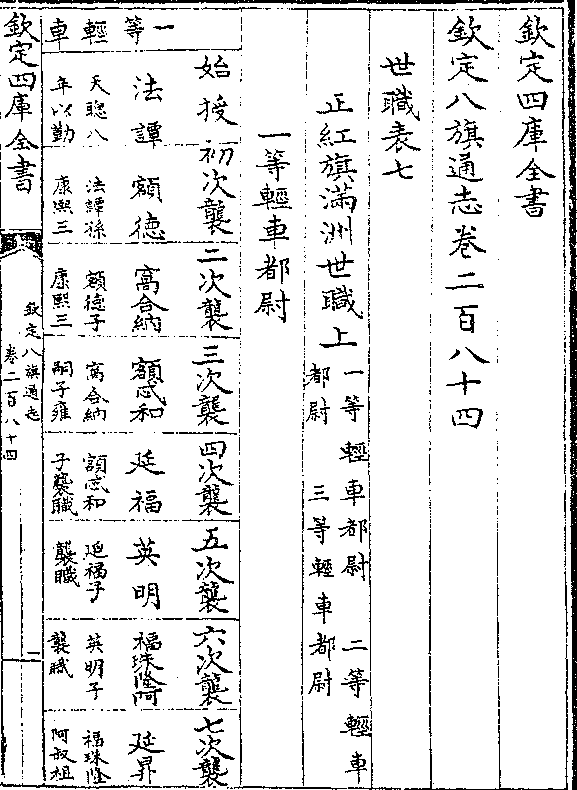 欽定四庫全書
欽定八旗通志卷二百八十四
世職表七
正紅旗滿洲世職上 一等輕車都尉 二等輕車
都尉 三等輕車都尉
一等輕車都尉
始授 初次襲 二次襲 三次襲 四次襲 五次襲 六次襲 七次襲
一等輕車
法譚
天聰八
年以勤
額德
法譚孫
康熙三
窩合納
額德子
康熙三
額忒和
窩合納
嗣子雍
延福
額忒和
子襲職
英明
延福子
襲職
福珠隆阿
英明子
襲職
延昇
福珠隆
阿叔祖
欽定四庫全書
欽定八旗通志
卷二百八十四
一